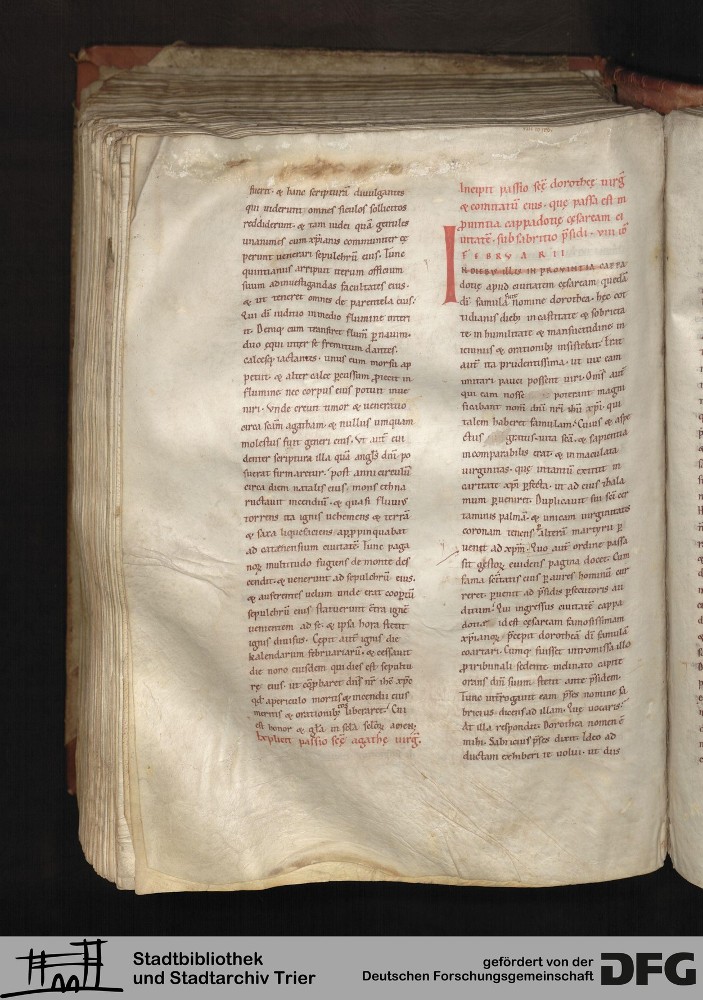 fuerit · & hanc scripturā diuulgantes
qui uiderunt omnes siculos sollicitos
reddiderunt · & tam iudei quā gentiles
unanimes cum xp̄ianis communiter cę
perunt uenerari sepulchrū eius. Tunc
quintianus arripuit iterum officium
suum ad inuestigandas facultates eius ·
& ut teneret omnes de parentela eius ·
Qui dī iuditio in medio flumine interi
it. Denique cum transiret flumē p nauim ·
duo equi inter se fremitum dantes ·
calcesq; iactantes · unus eum morsu ap
petit · & alter calce pcussum piecit in
flumine · nec corpus eius potuit inue
niri · Vnde creuit timor & ueneratio
circa scām agatham · & nullus umquam
molestus fuit generi eius · Vt aut̄ eui
denter scriptura illa quā angls dnī po
suerat firmaretur · post anni circulū
circa diem natalis eius · mons ethna
ructauit incendiū · & quasi fluuius
torrens ita ignis uehemens & terrā
& saxa liquefaciens appinquabat
ad catanensium ciuitatē. Tunc paga
noȝ multitudo fugiens de monte des
cendit · & uenerunt ad sepulchrū eius ·
& auferentes uelum unde erat coop̄tū
sepulchrū eius statuerunt cōtra ignē
uenientem ad se · & ipsa hora stetit
ignis diuisus · Cępit aut̄ ignis die
kalendarum februariarū · & cessauit
die nono eiusdem qui dies est sepultu
rę eius · ut cōpbaret dn̄s n̄r ihē xp̄c
qd a periculo mortis & incendii eius
meritis & orationib; eos liberaret · Cui
est honor & gla in scla scloȝ amen ·
Explicit passio scę agathę uirḡ ·
Incipit passio scę dorotheę uirḡ
& comitatū eius · quę passa est in
puintia cappadotię cęsaream ci
uitatē · sub fabritio psidi · VIII id
FEBRVARII
IN DIEBVS ILLIS IN PROVINTIA CAPPA
dotię apud ciuitatem cęsaream quedā
dī famula fuit nomine dorothea · hęc cot
tidianis dieb; in castitate & sobrieta
te · in humilitate & mansuetudine in
ieiuniis & orationib; insistebat · Erat
aut̄ ita prudentissima · ut uix eam
imitari pauci possent uiri · Om̄s aut̄
qui eam nosse poterant magni
ficabant nom̄ dnī nr̄i ihū xp̄i · qui
talem haberet famulam · Cuius & aspe
ctus gratus · uita scā · & sapientia
incomparabilis erat · & inmaculata
uirginitas · quę intantū extitit in
caritate xp̄i pfecta · ut ad eius thala
mum pueniret · Duplicauit sui scī cer
taminis palmā · & unicam uirginitatis
coronam tenens alterā martyrii p
uenit ad xp̄m · Quo aut̄ ordine passa
sit gestoȝ euidens pagina docet · Cum
fama scītatis eius p aures hominū cur
reret · puenit ad psidis psecutoris au
ditum · Qui ingressus ciuitatē cappa
dotię id est cęsaream famosissimam
xp̄ianoȝ pcepit dorotheā dī famulā
coartari · Cumq; fuisset intromissa illo
p tribunali sedente inclinato capite
orans dnm suum · stetit ante psidem ·
Tunc interrogauit eam pses nomine fa
bricius dicens ad illam · Quę uocaris ·
At illa respondit · Dorothea nomen ē
mihi · Fabricius pses dixit · Ideo ad
ductam exhiberi te uolui · ut diis
Stadtbibliothek
und Stadtarchiv Trier
gefördert von der
Deutschen Forschungsgemeinschaft
DFG